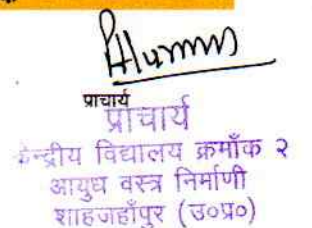 प्राचार्य
प्राचार्य
केन्द्रीय विद्यालय क्रमाँक २
आयुध वस्त्र निर्माणी
शाहजहाँपुर (उ०प्र०)